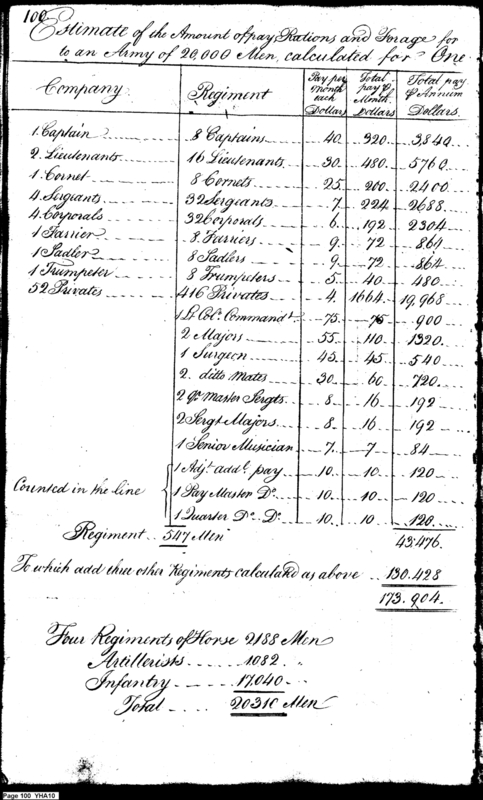 100
Estimate of the Amount of pay Rations and Forage for
to an Army of 20,000 Men, calculated for One
Company Regiment Pay per month each Dollars Total pay ⅌ Month Dollars Total pay ⅌ Annum Dollars
1 Captain 8 Captains 40 320 3840
2 Lieutenants 16 Lieutenants 30 480 5760
1 Cornet 8 Cornets 25 200 2400
4 Sergeants 32 Sergeants 7 224 2688
4 Corporals 32 Corporals 6 192 2304
1 Farrier 8 Farriers 9 72 864
1 Sadler 8 Sadlers 9 72 864
1 Trumpeter 8 Trumpeters 5 40 480
52 Privates 416 Privates 4 1664 19,968
1 Lt. Col. Commandt 75 75 900
2 Majors 55 110 1320
1 Surgeon 45 45 540
2 ditto Mates 30 60 720
2 Qr. Master Sergts 8 16 192
2 Sergt Majors 8 16 192
1 Senior Musician 7 7 84
1 Adjt. addl. pay 10 10 120
Counted in the line 1 Pay Master Do. 10 10 120
1 Quarter Do. Do. 10 10 120
Regiment 547 Men 43.476.
To which add three other Regiments calculated as above 130.428
173.904.
Four Regiments of Horse 2188 Men
Artillerists 1082 "
Infantry 17,040
Total 20310 Men
Page 100 YHA10